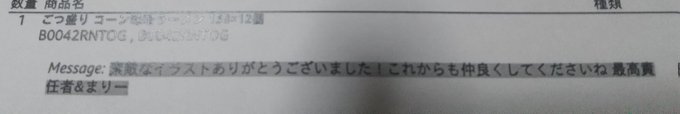 数量 商品名 種類
1 ごつ盛り コーン味噌ラーメン 138×12個
B0042RNTOG , B0042RNTOG
Message: 素敵なイラストありがとうございました！これからも仲良くしてくださいね 最高責
任者&まりー